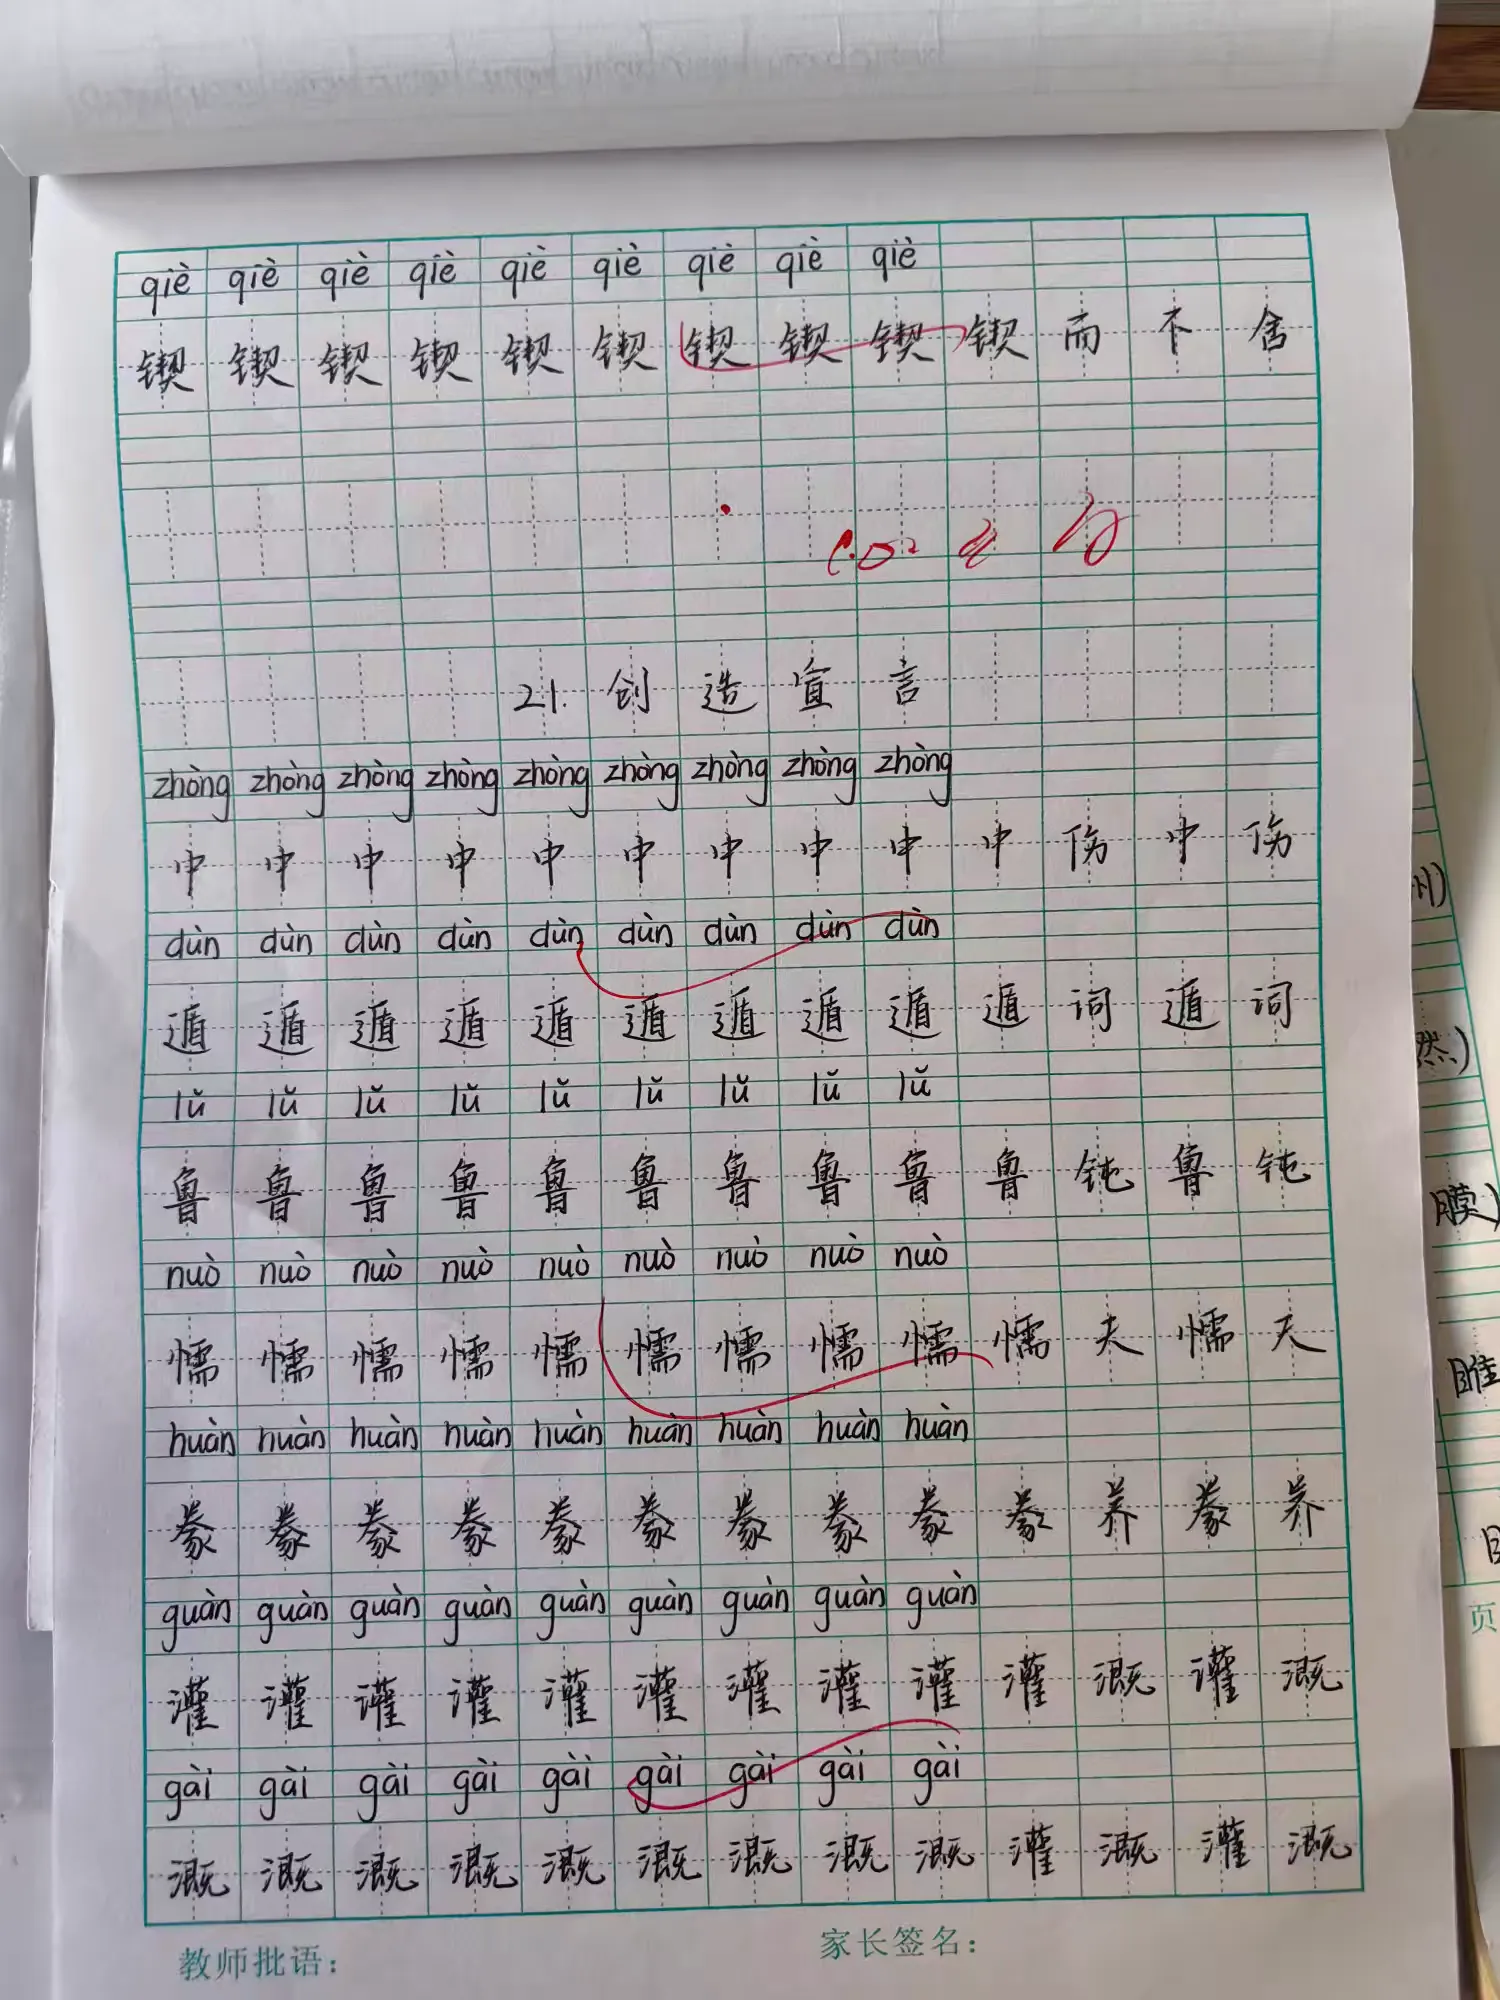 qiè qiè qiè qiè qiè qiè qiè qiè qiè
锲 锲 锲 锲 锲 锲 锲 锲 锲 锲 而 不 舍
21. 创 造 宣 言
zhòng zhòng zhòng zhòng zhòng zhòng zhòng zhòng zhòng
中 中 中 中 中 中 中 中 中 中 伤 中 伤
dùn dùn dùn dùn dùn dùn dùn dùn dùn
遁 遁 遁 遁 遁 遁 遁 遁 遁 遁 词 遁 词
lǔ lǔ lǔ lǔ lǔ lǔ lǔ lǔ lǔ
鲁 鲁 鲁 鲁 鲁 鲁 鲁 鲁 鲁 鲁 钝 鲁 钝
nuò nuò nuò nuò nuò nuò nuò nuò nuò
懦 懦 懦 懦 懦 懦 懦 懦 懦 懦 夫 懦 夫
huàn huàn huàn huàn huàn huàn huàn huàn huàn
豢 豢 豢 豢 豢 豢 豢 豢 豢 豢 养 豢 养
guàn guàn guàn guàn guàn guàn guàn guàn guàn
灌 灌 灌 灌 灌 灌 灌 灌 灌 灌 溉 灌 溉
gài gài gài gài gài gài gài gài gài
溉 溉 溉 溉 溉 溉 溉 溉 溉 灌 溉 灌 溉
教师批语：
家长签名：
然)
膜)
睢
页